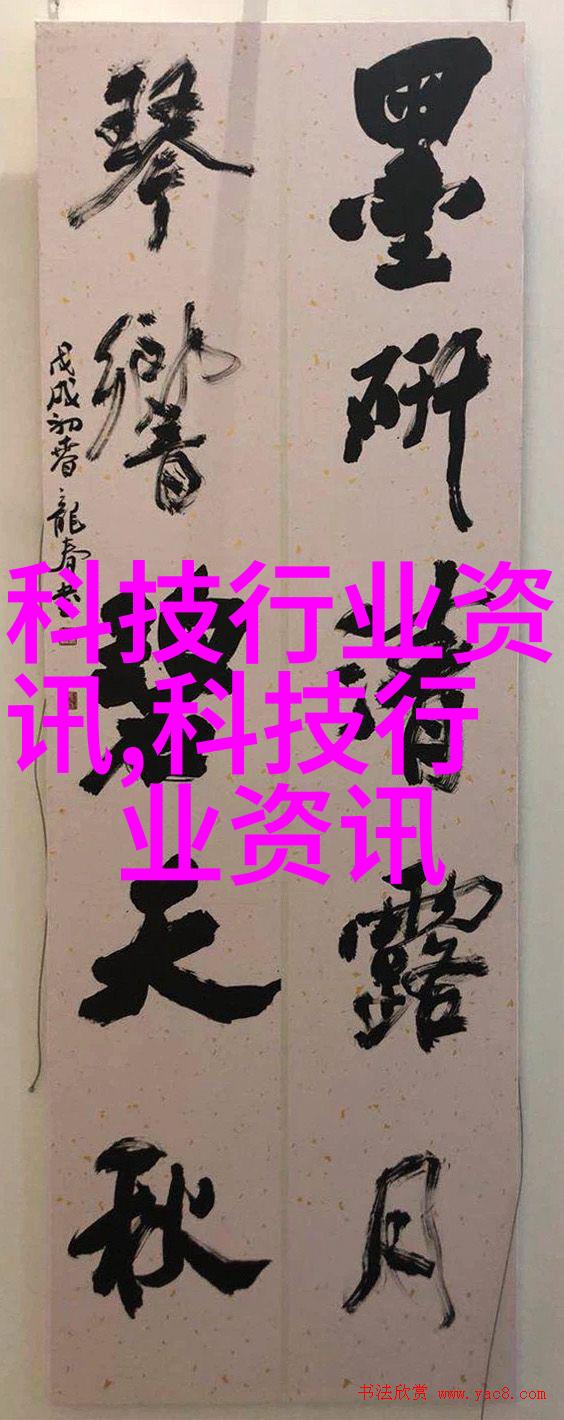 墨研清露月
琴響碧天秋
戊戌初春龍春书
科技行业资
讯,科技行
业资讯
书法欣赏 www.yac8.com